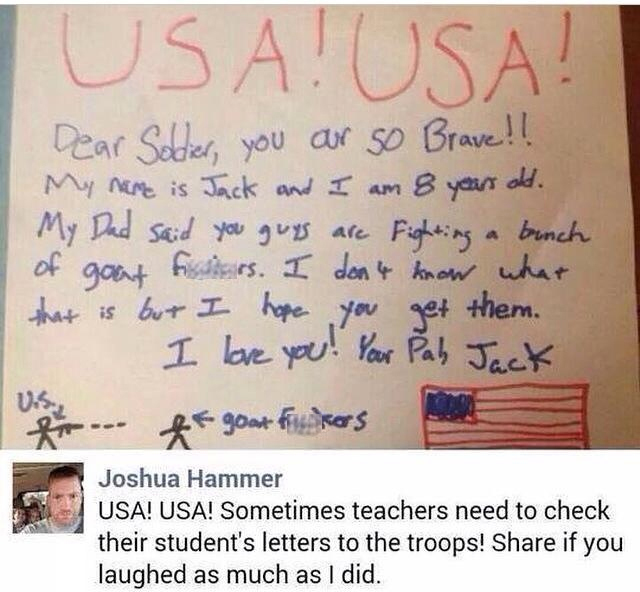 USA! USA!
Dear Soldier, you ar so Brave!!
My name is Jack and I am 8 years old.
My Dad said you guys are Fighting a bunch
of goat I don't know what
that is but I hope you get them.
I love you! Your Pal, Jack
U.S.
goat
Joshua Hammer
USA! USA! Sometimes teachers need to check
their student's letters to the troops! Share if you
laughed as much as I did.